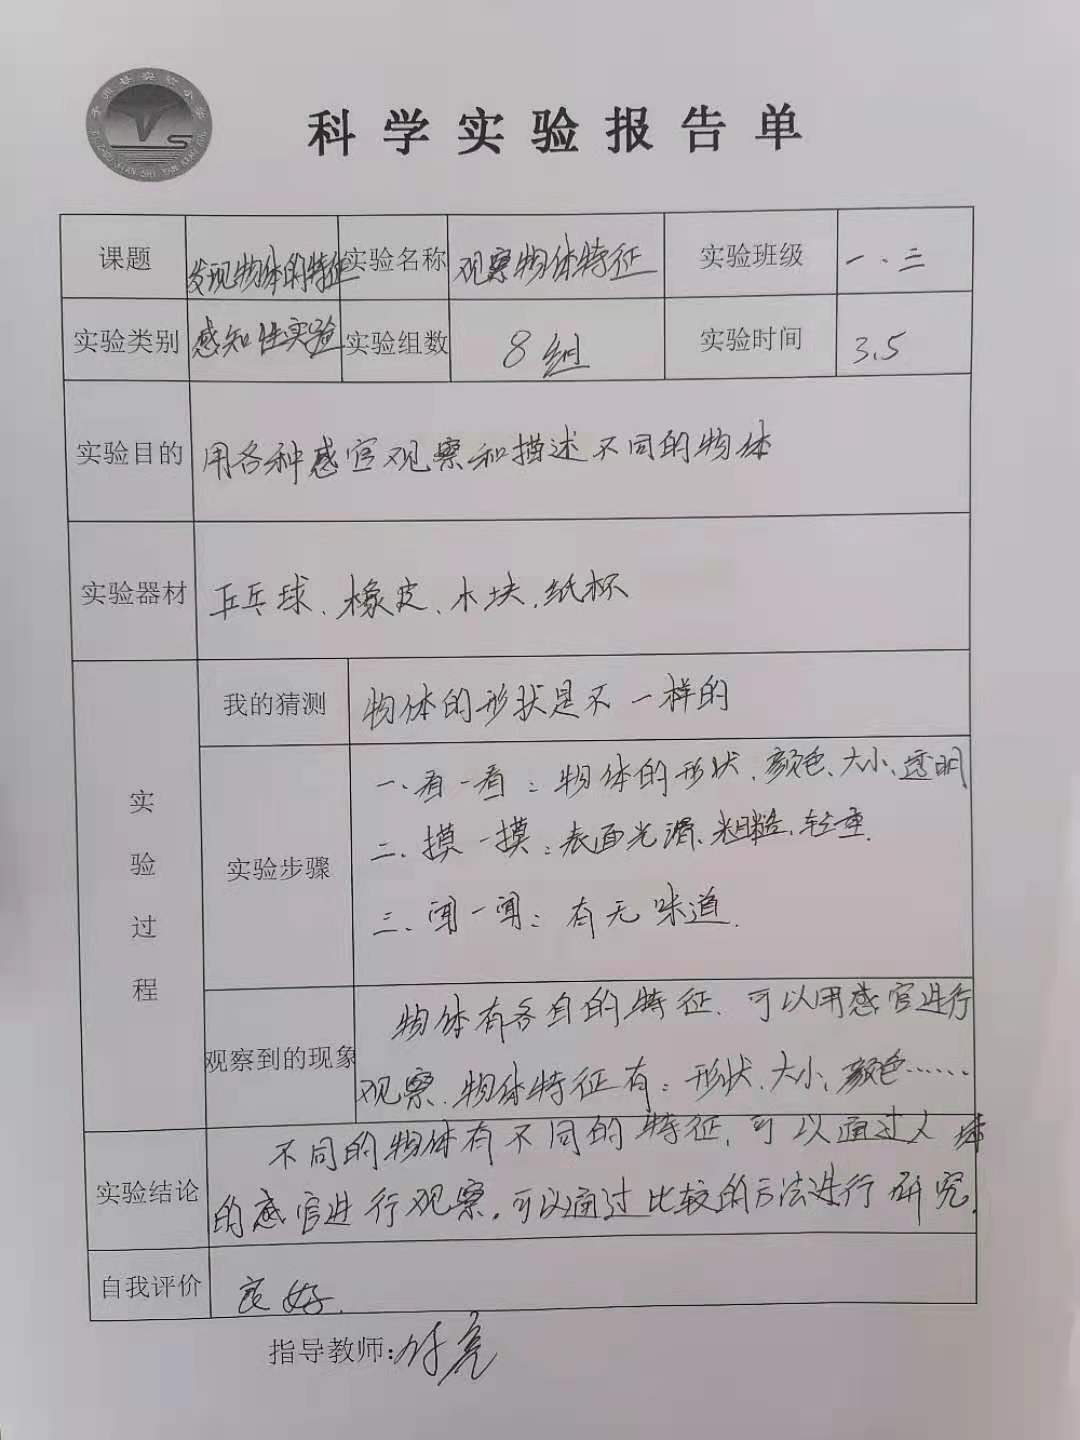 科学实验报告单
课题 发现物体的特征 实验名称 观察物体特征 实验班级 一、三
实验类别 感知性实验 实验组数 8组 实验时间 3.5
实验目的 用各种感官观察和描述不同的物体
实验器材 乒乓球、橡皮、木块、纸杯
实验过程
我的猜测 物体的形状是不一样的
实验步骤 一、看一看：物体的形状、颜色、大小、透明
二、摸一摸：表面光滑、粗糙、轻重.
三、闻一闻：有无味道.
观察到的现象 物体有各自的特征.可以用感官进行
观察.物体特征有：形状、大小、颜色……
实验结论 不同的物体有不同的特征,可以通过人体
的感官进行观察,可以通过比较的方法进行研究.
自我评价 良好.
指导教师:付亮